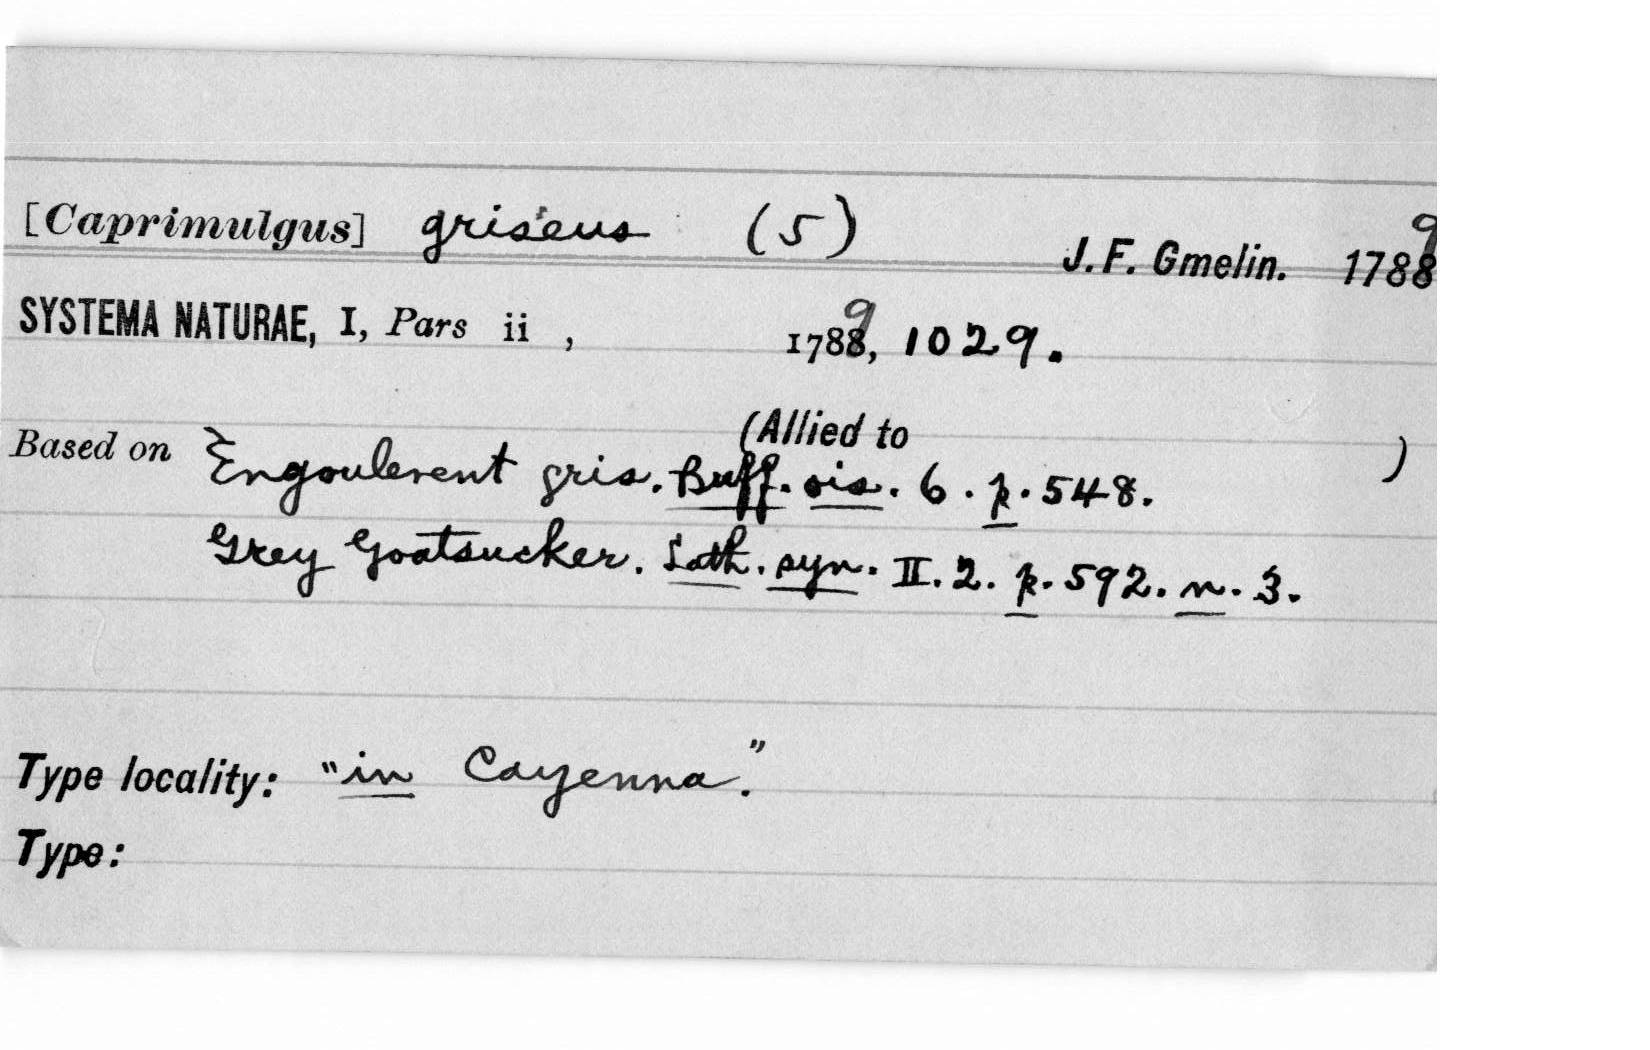 [Caprimulgus] griseus (5) J. F. Gmelin. 1789
SYSTEMA NATURAE, I, Pars ii , 1789, 1029.
(Allied to )
Based on Engoulevent gris. Buff. ois. 6. p. 548.
Grey Goatsucker. Lath. syn. II. 2. p. 592. n. 3.
Type locality: "in Cayenna."
Type: